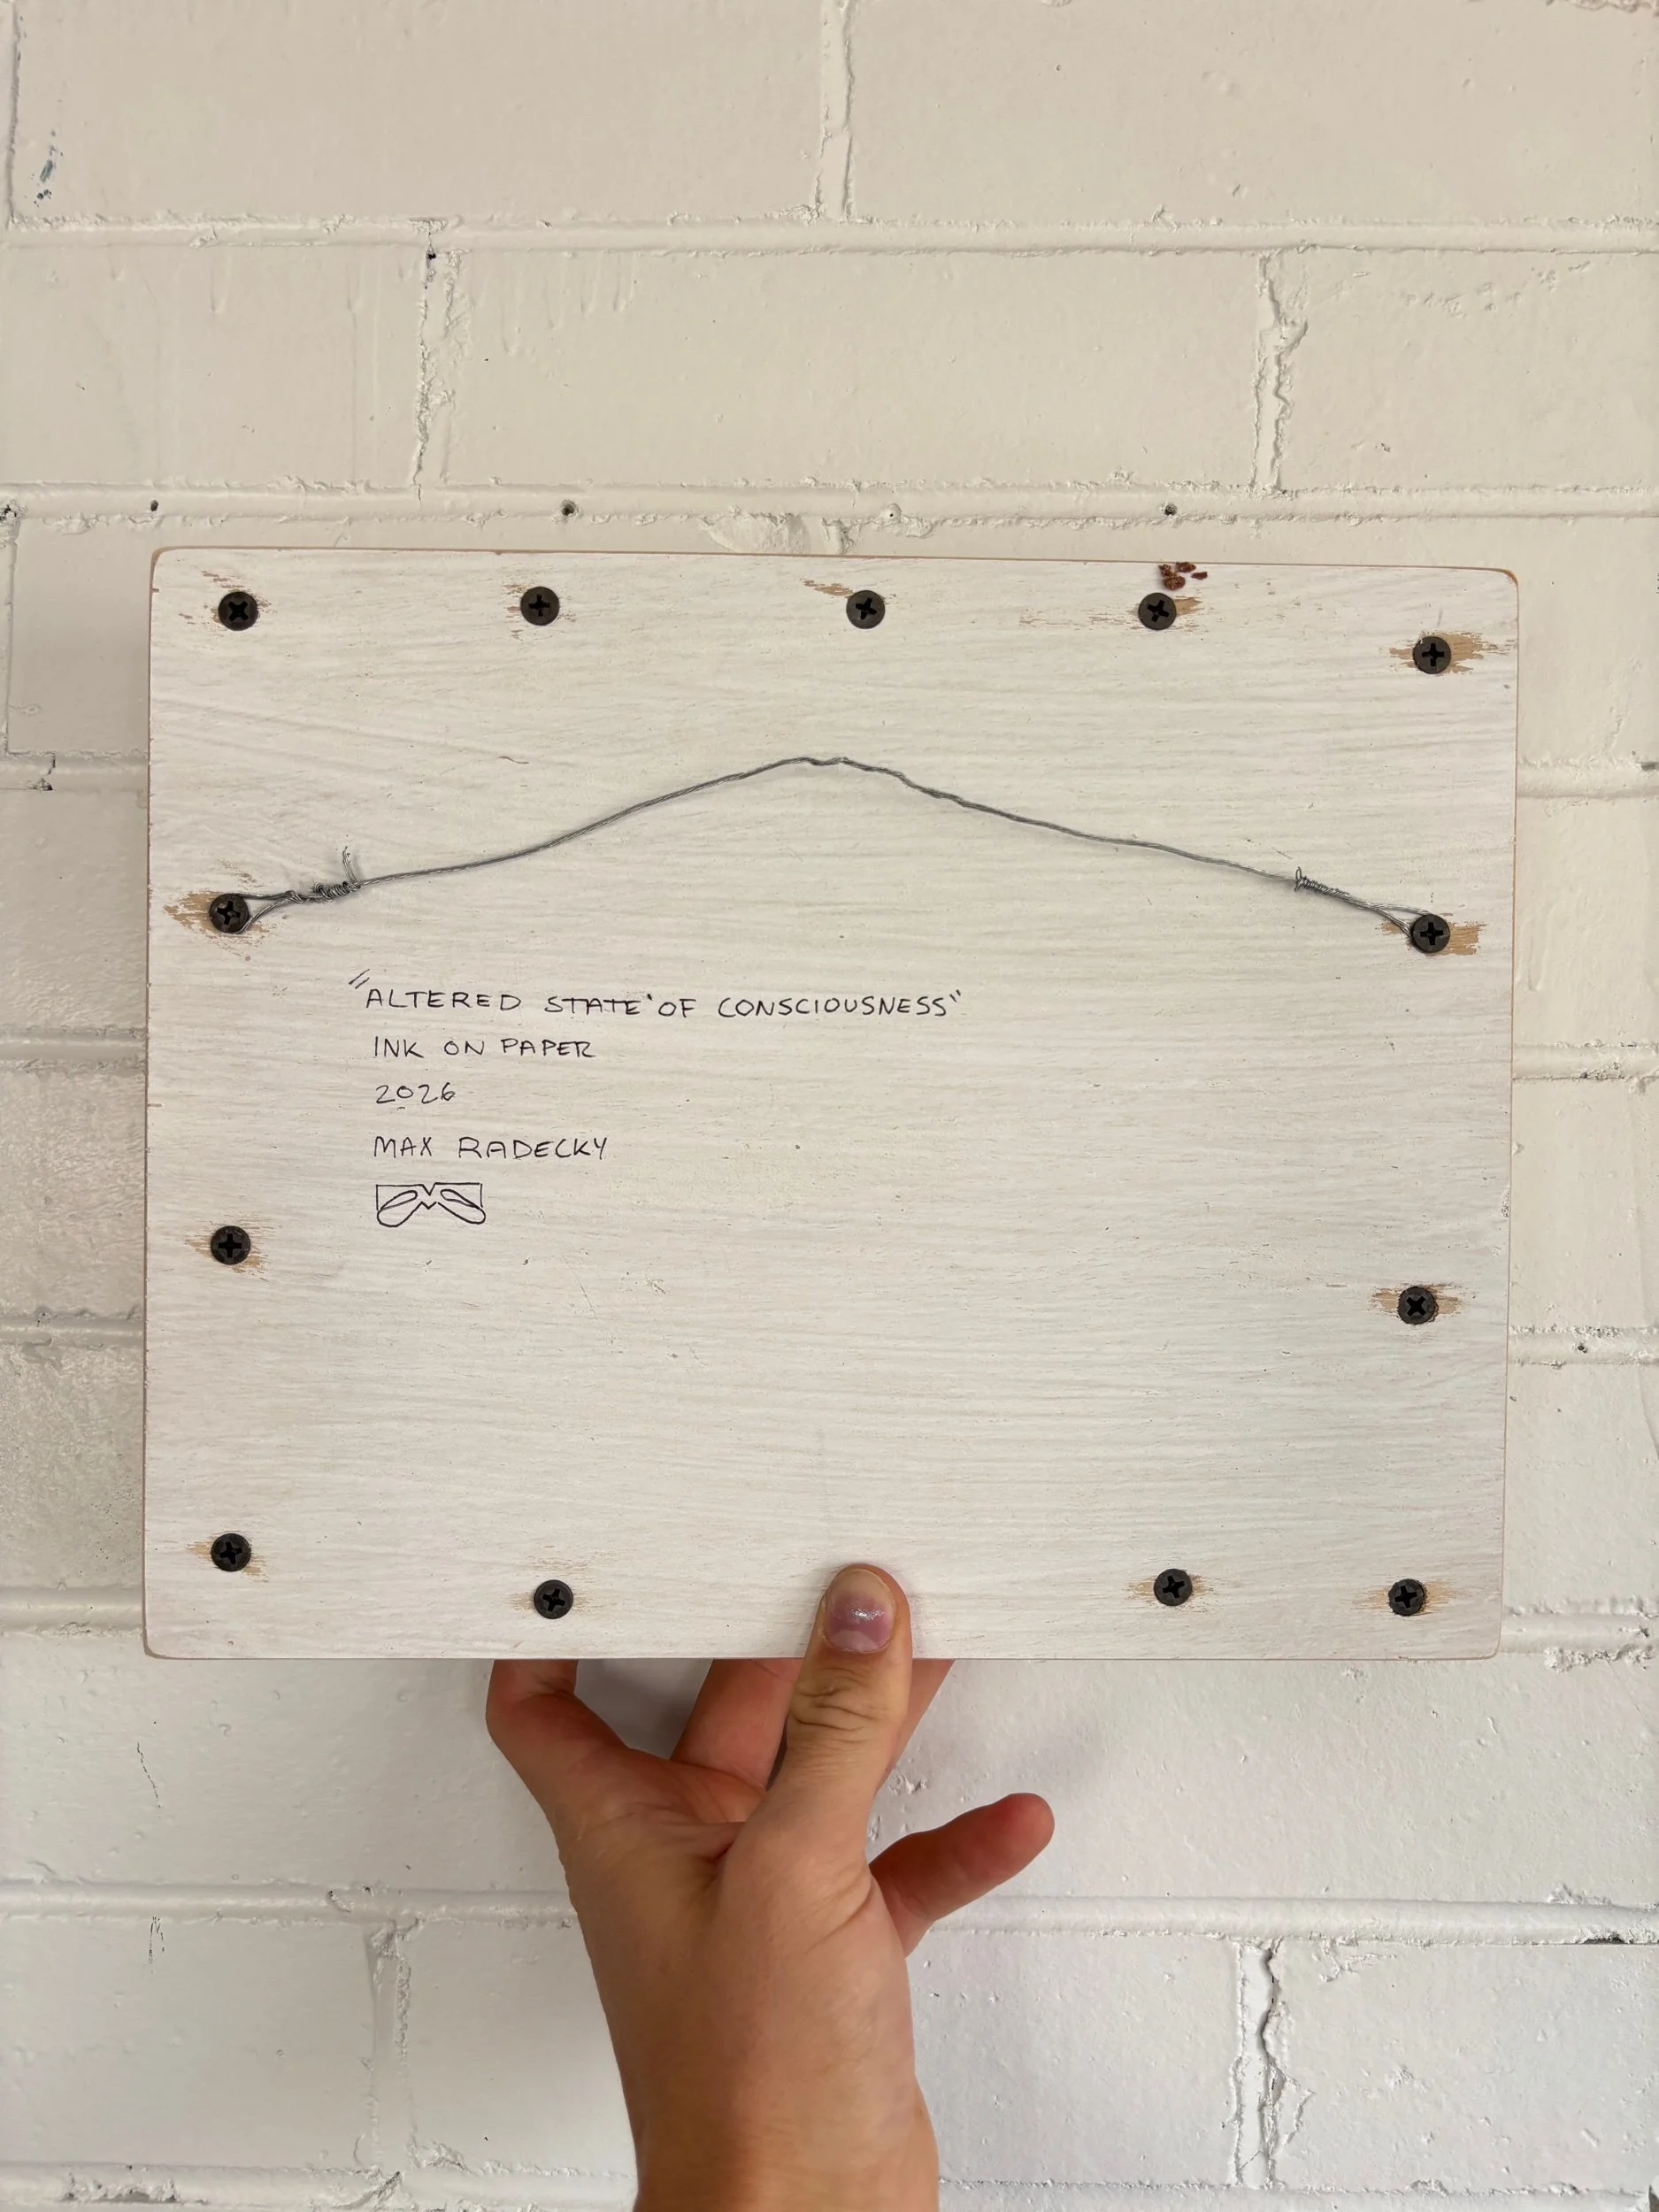 "ALTERED STATE OF CONSCIOUSNESS"
INK ON PAPER
2026
MAX RADECKY